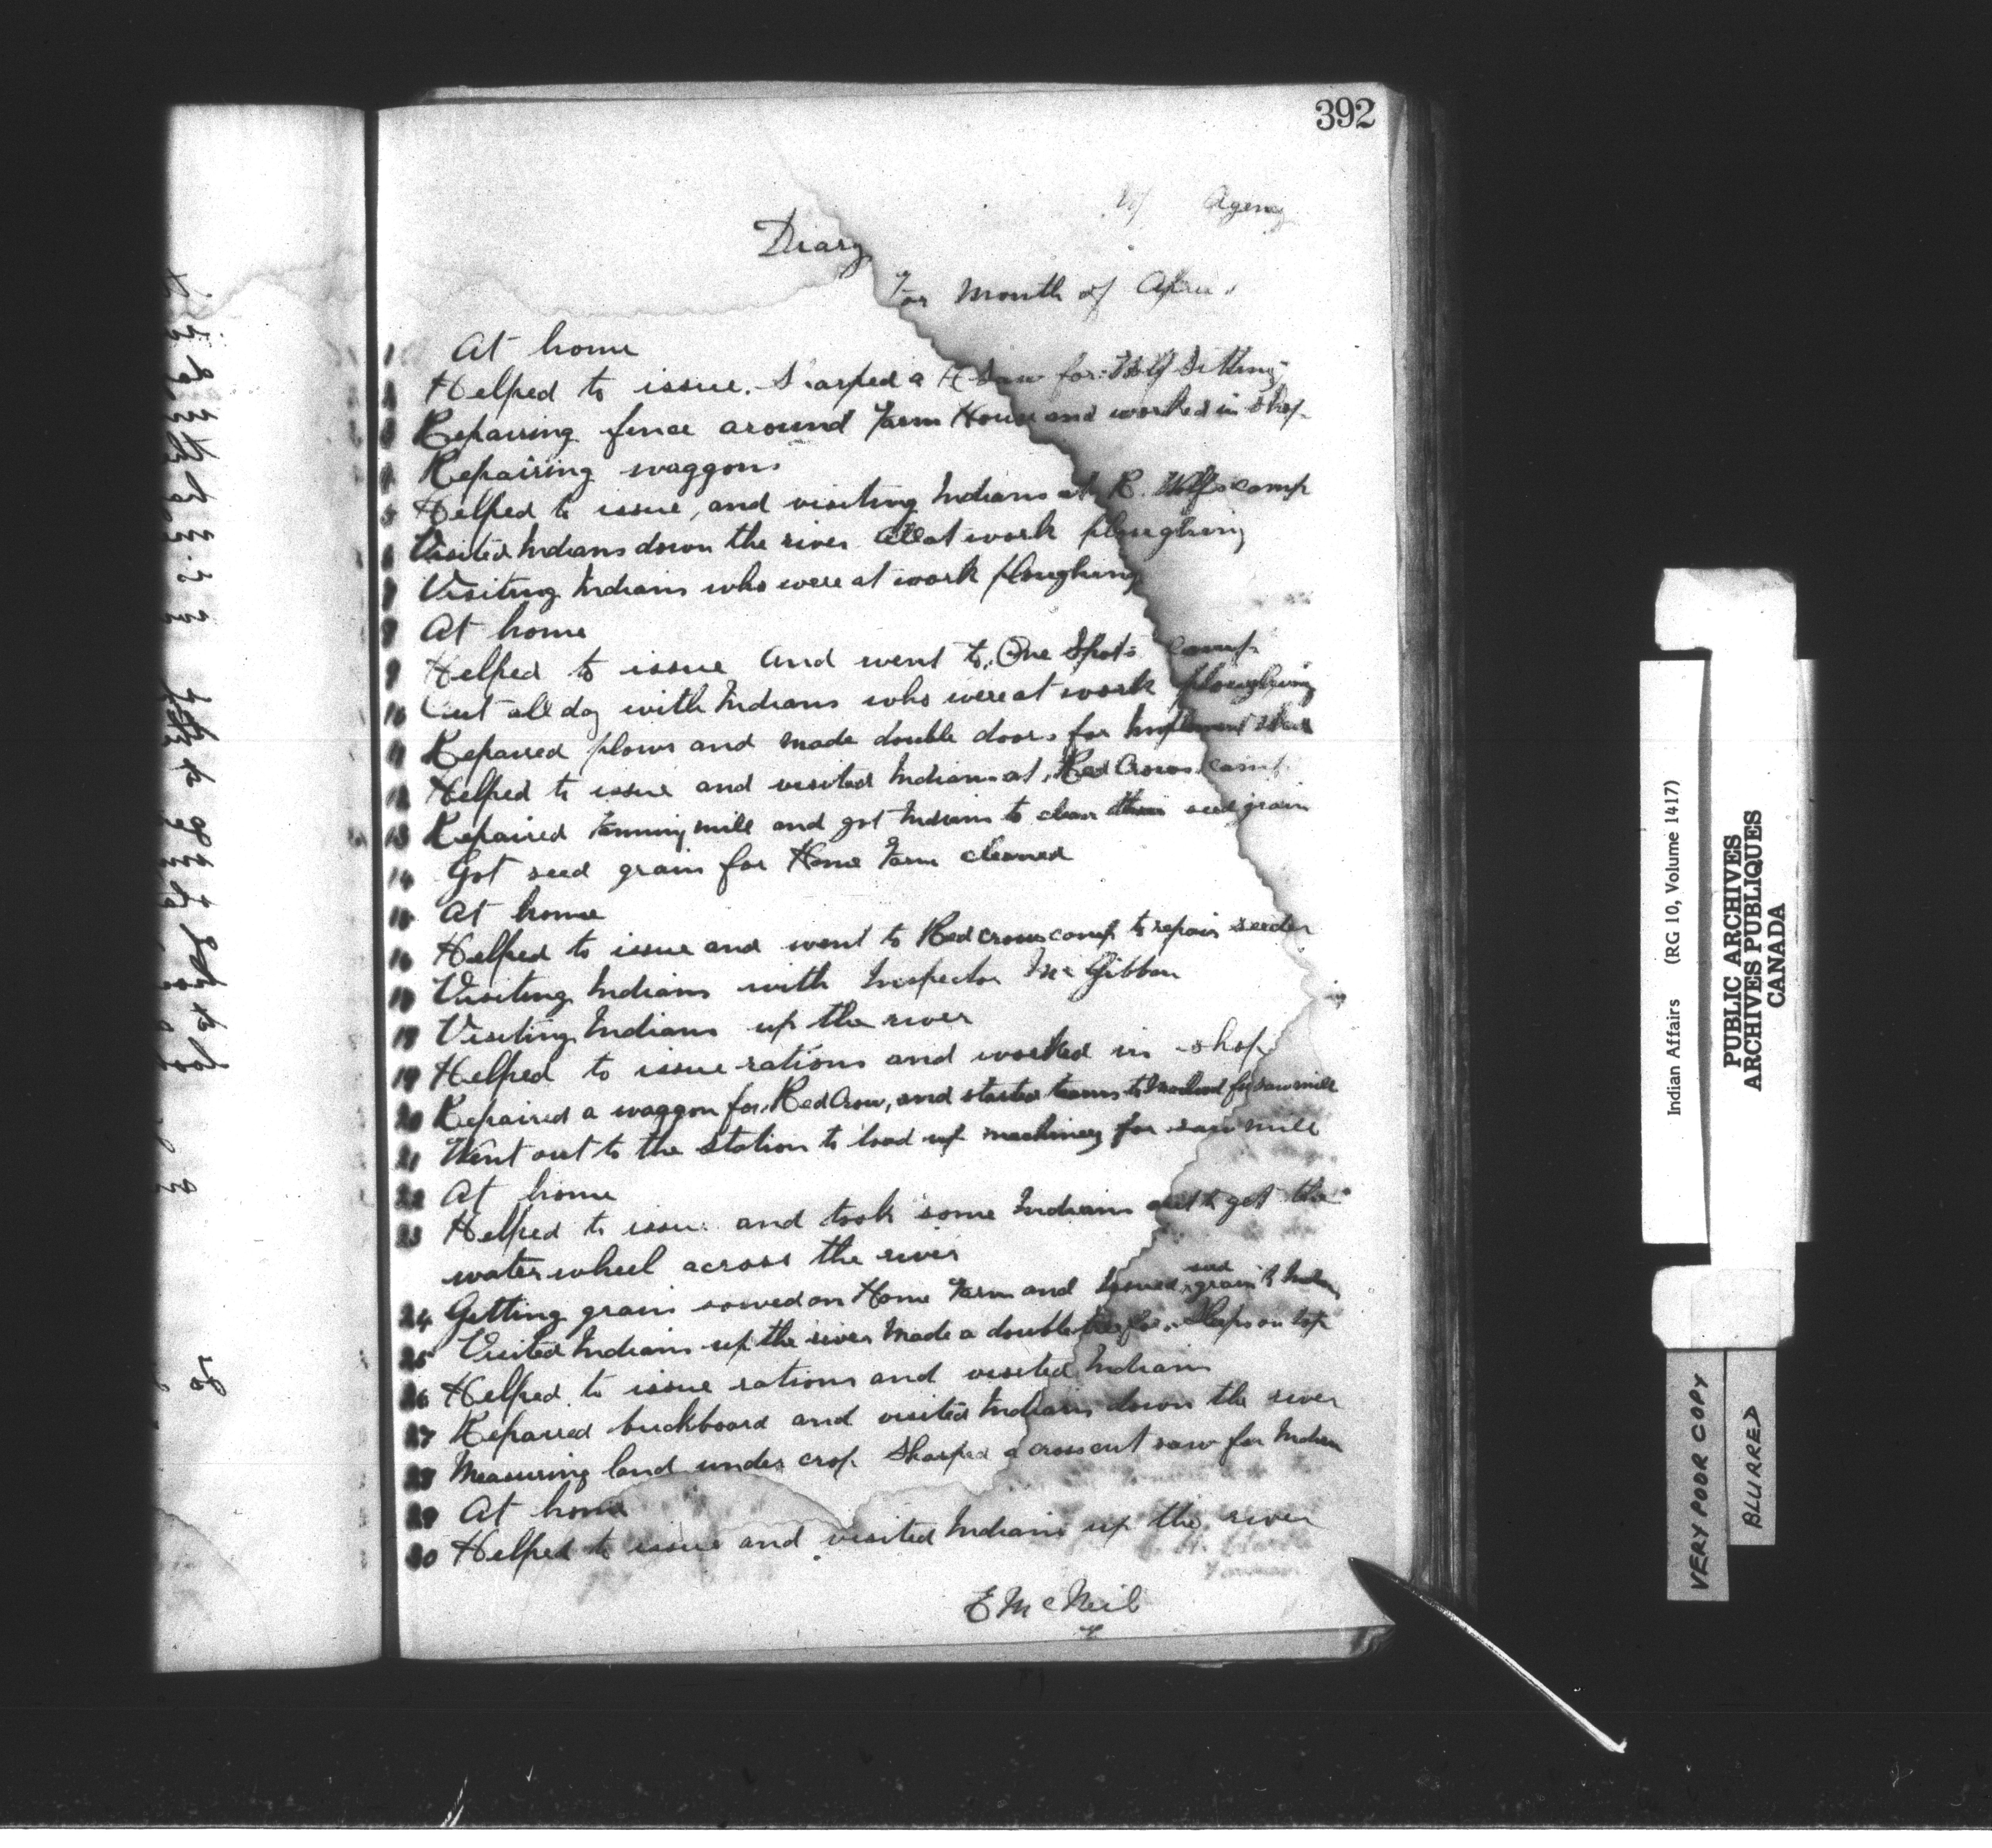 392
Agency
Diary
For Month of April
1 At home
2 Helped to issue. Sharped a H Saw for Wolf Sitting
3 Repairing fence around Farm House and worked in shop
4 Repairing waggons
5 Helped to issue, and visiting Indians at R. Wolfs camp
6 Visited Indians down the river all at work ploughing
7 Visiting Indians who were at work ploughing
8 At home
9 Helped to issue and went to One Spots camp
10 Out all day with Indians who were at work ploughing
11 Repaired plows and made double doors for Implement
12 Helped to issue and visited Indians at Red Crows camp
13 Repaired fanning mill and got Indians to clean their seed grain
14 Got seed grain for Home Farm cleaned
15 At home
16 Helped to issue and went to Red crows camp to repair seeder
17 Visiting Indians with Inspector McGibbon
18 Visiting Indians up the river
19 Helped to issue rations and worked in shop
20 Repaired a waggon for Red Crow, and started teams to for saw mill
21 Went out to the station to load up machinery for saw mill
22 At home
23 Helped to issue and took some Indians out to get the
water wheel across the river
24 Getting grain sowed on Home Farm and issued seed grain to
25 Visited Indians up the river Made a double tree for Sleeps on top
26 Helped to issue rations and visited Indians
27 Repaired buckboard and visited Indians down the river
28 Measuring land under crop. Sharped a cross cut saw for Indian
29 At home
30 Helped to issue and visited Indians up the river
E McNeil
Indian Affairs (RG 10, Volume 1417)
PUBLIC ARCHIVES
ARCHIVES PUBLIQUES
CANADA
VERY POOR COPY
BLURRED